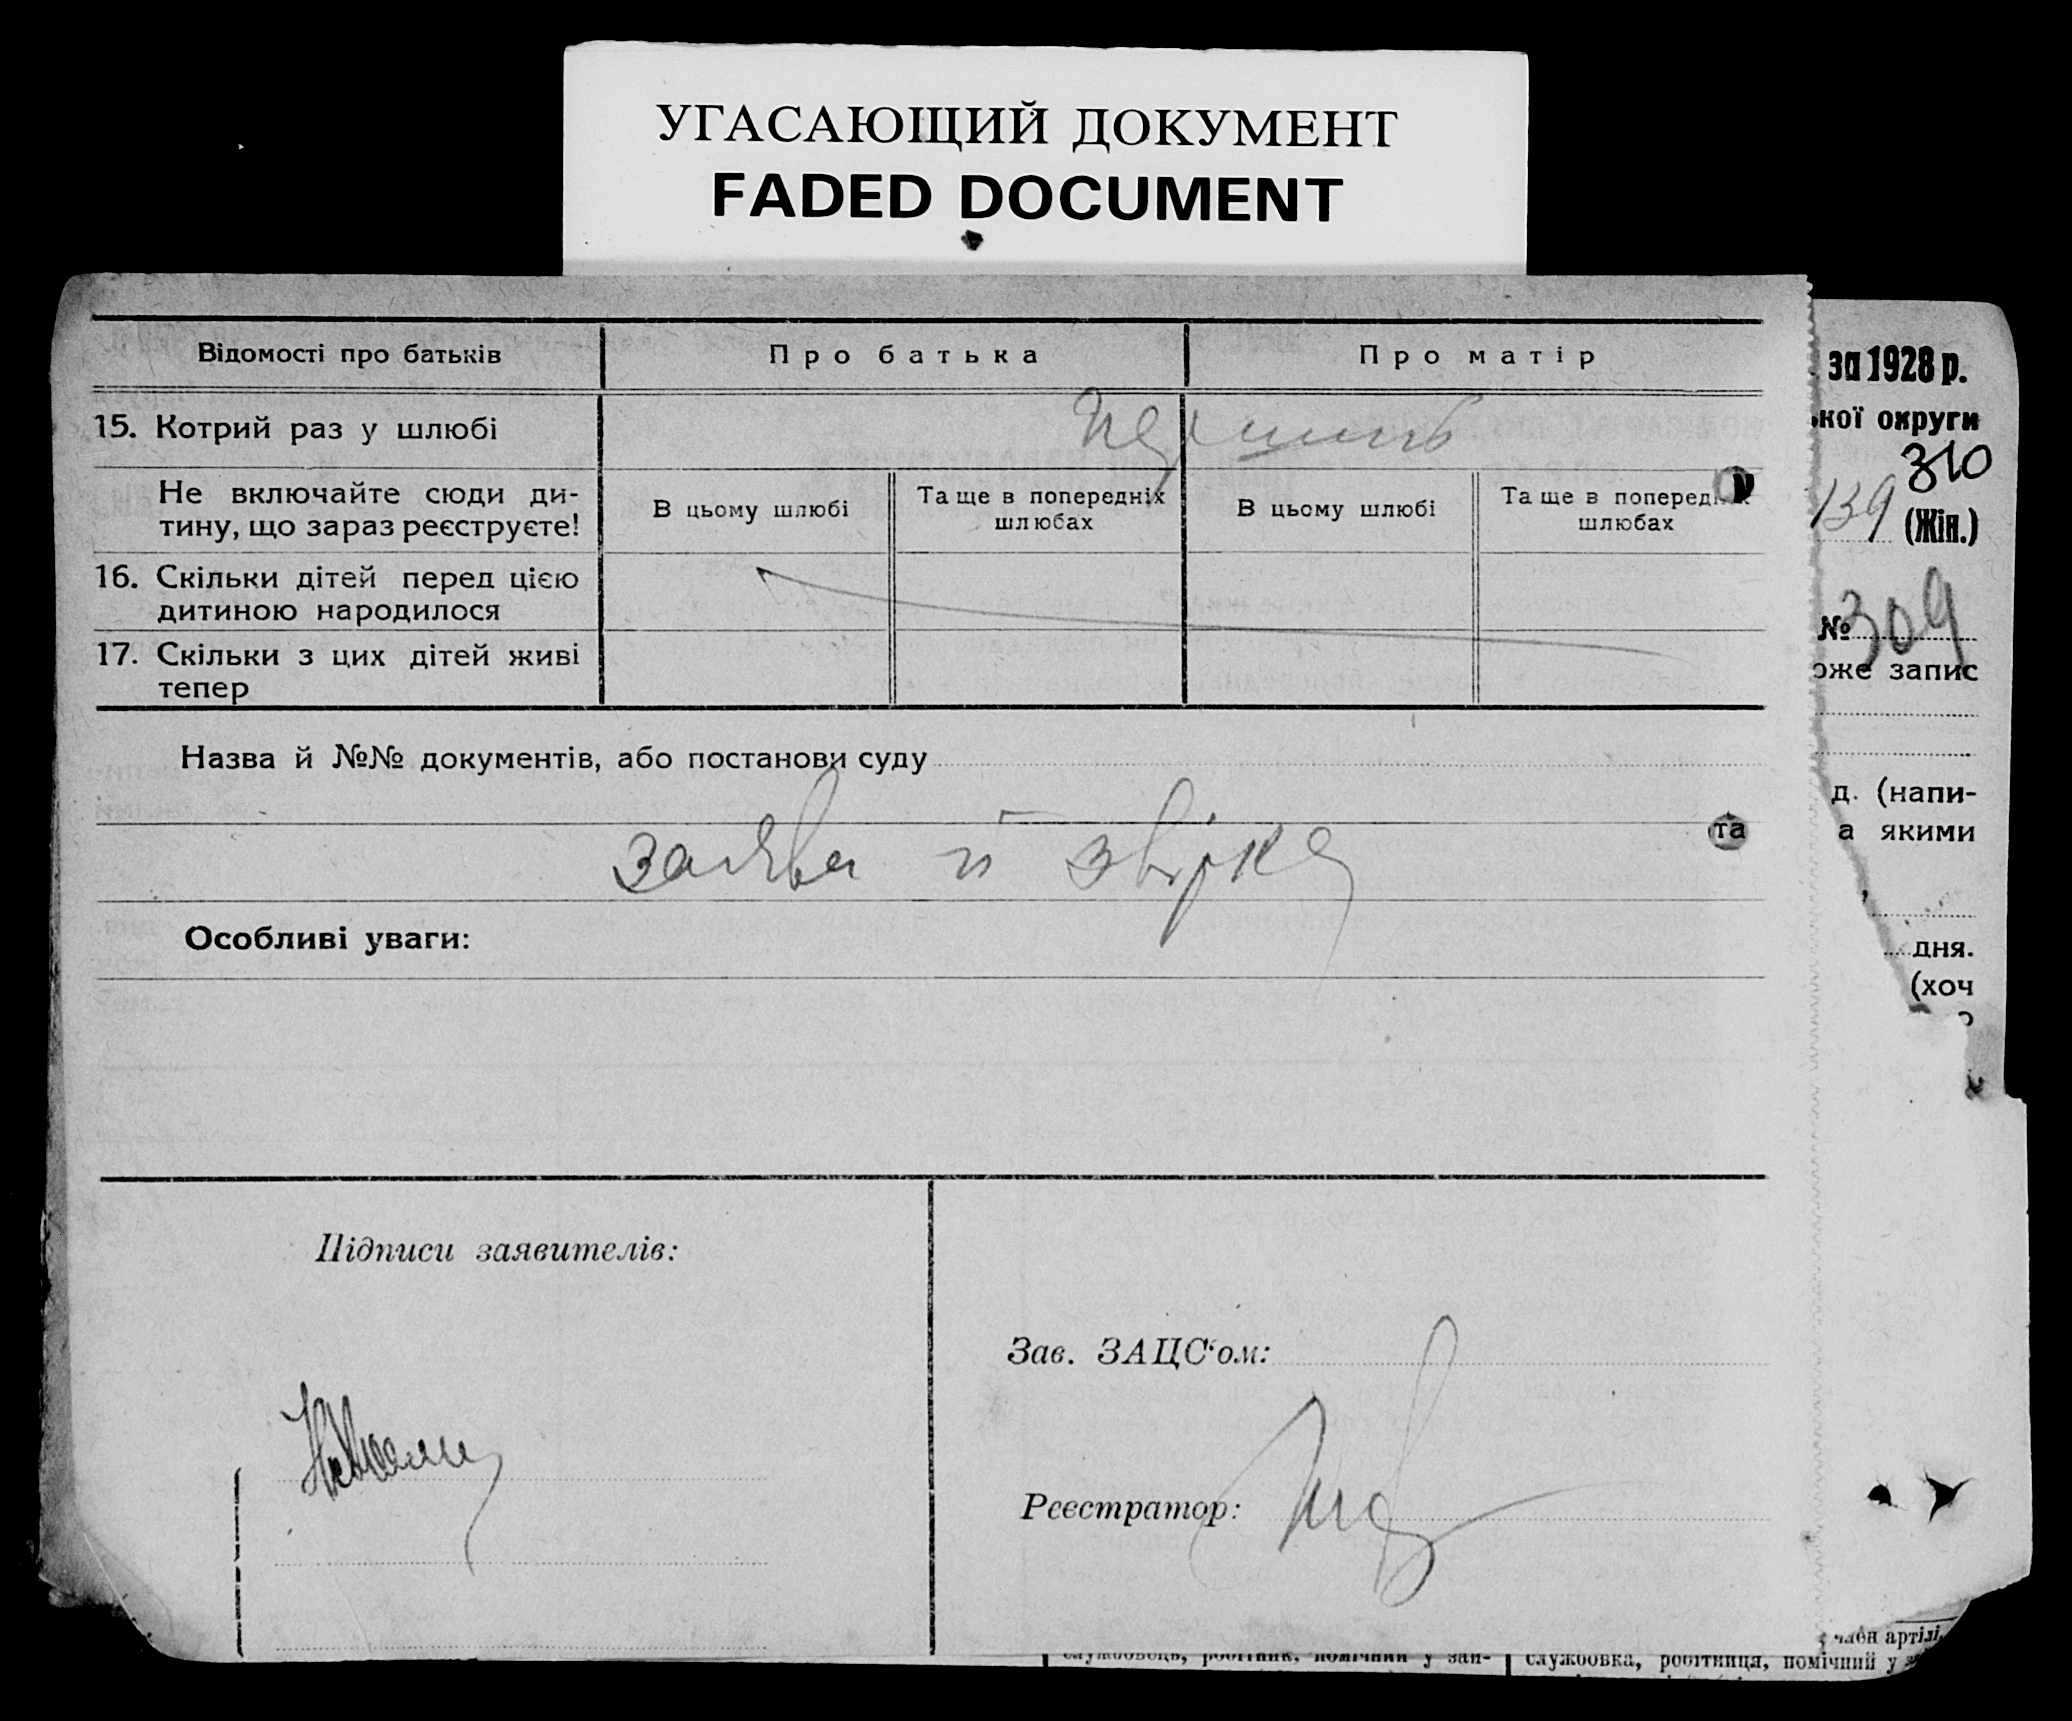 УГАСАЮЩИЙ ДОКУМЕНТ
FADED DOCUMENT
Відомості про батьків
Про батька
Про матір
15. Котрий раз у шлюбі
Не включайте сюди ди-
тину, що зараз реєструєте!
В цьому шлюбі
Та ще в попередніх
шлюбах
В цьому шлюбі
Та ще в попередніх
шлюбах
16. Скільки дітей перед цією
дитиною народилося
17. Скільки з цих дітей живі
тепер
Назва й №№ документів, або постанови суду
заява й звірка
Особливі уваги:
Підписи заявителів:
Зав. ЗАЦС‘ом:
Реєстратор:
за 1928 р.
кої округи
310
139 (Жін.)
№ 309
оже запис
д. (напи-
та
а якими
дня.
(хоч
член артілі,
службовець, робітник, помічний у зай-
службовка, робітниця, помічний у